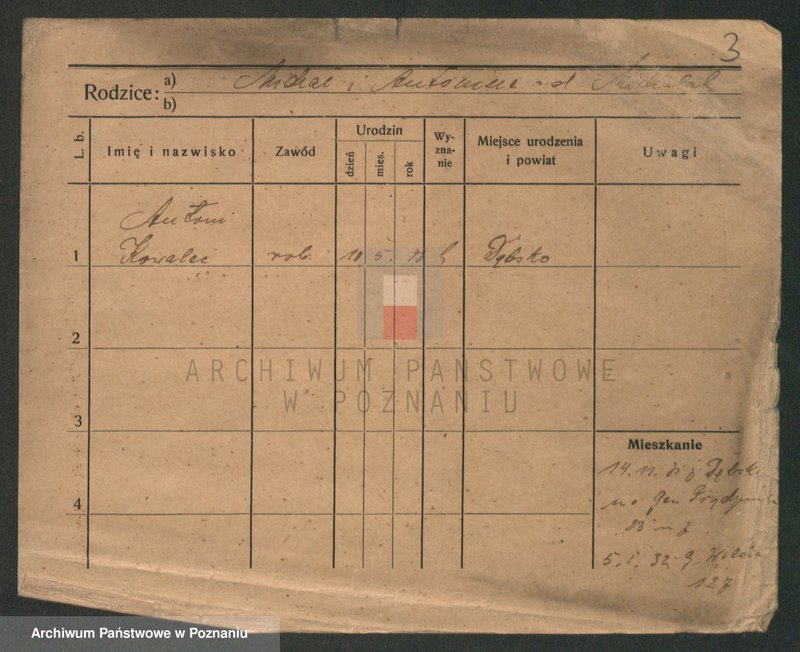 3
Rodzice: a) Michał i Antonina z d Michalak
b)
L. b.
Imię i nazwisko
Zawód
Urodzin
dzień
mies.
rok
Wy-
zna-
nie
Miejsce urodzenia
i powiat
Uwagi
Antoni
1 Kowalec rob. 10 5. 10 Dębsko
2
3
4
Mieszkanie
14. 11. 31 z Dębsk
na Gen
5. 1. 32 G. Wilda
127
ARCHIWUM PAŃSTWOWE
W POZNANIU
Archiwum Państwowe w Poznaniu